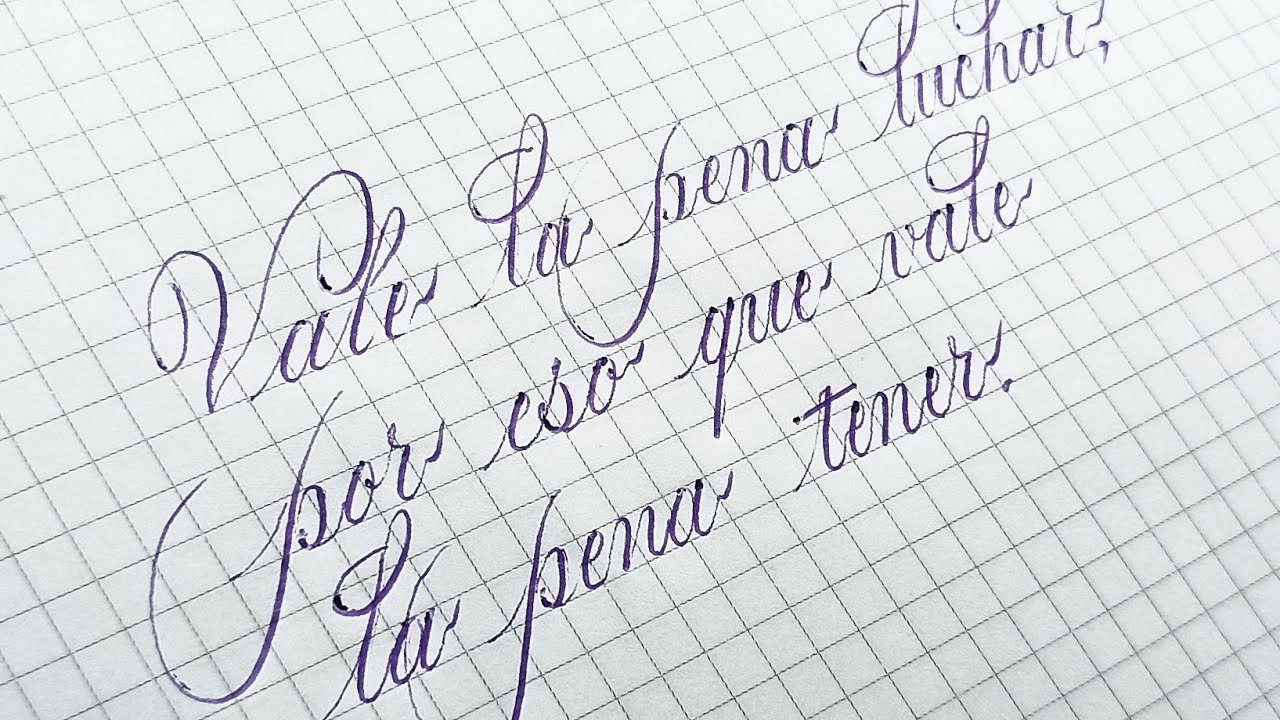 Vale la pena luchar,
por eso que vale
la pena tener.